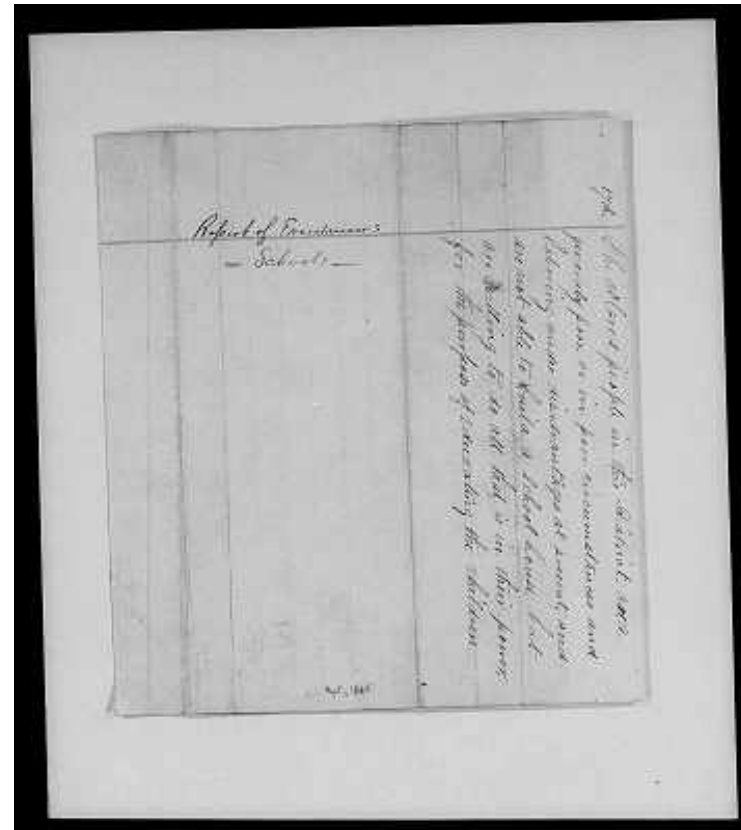 Report of Freedmen's
— Schools —
17th The colored people in this District are
poor or in poor circumstances and
laboring under disadvantages at present, and
are not able to build a school house, but
are willing to do all that is in their power
for the purpose of educating the children